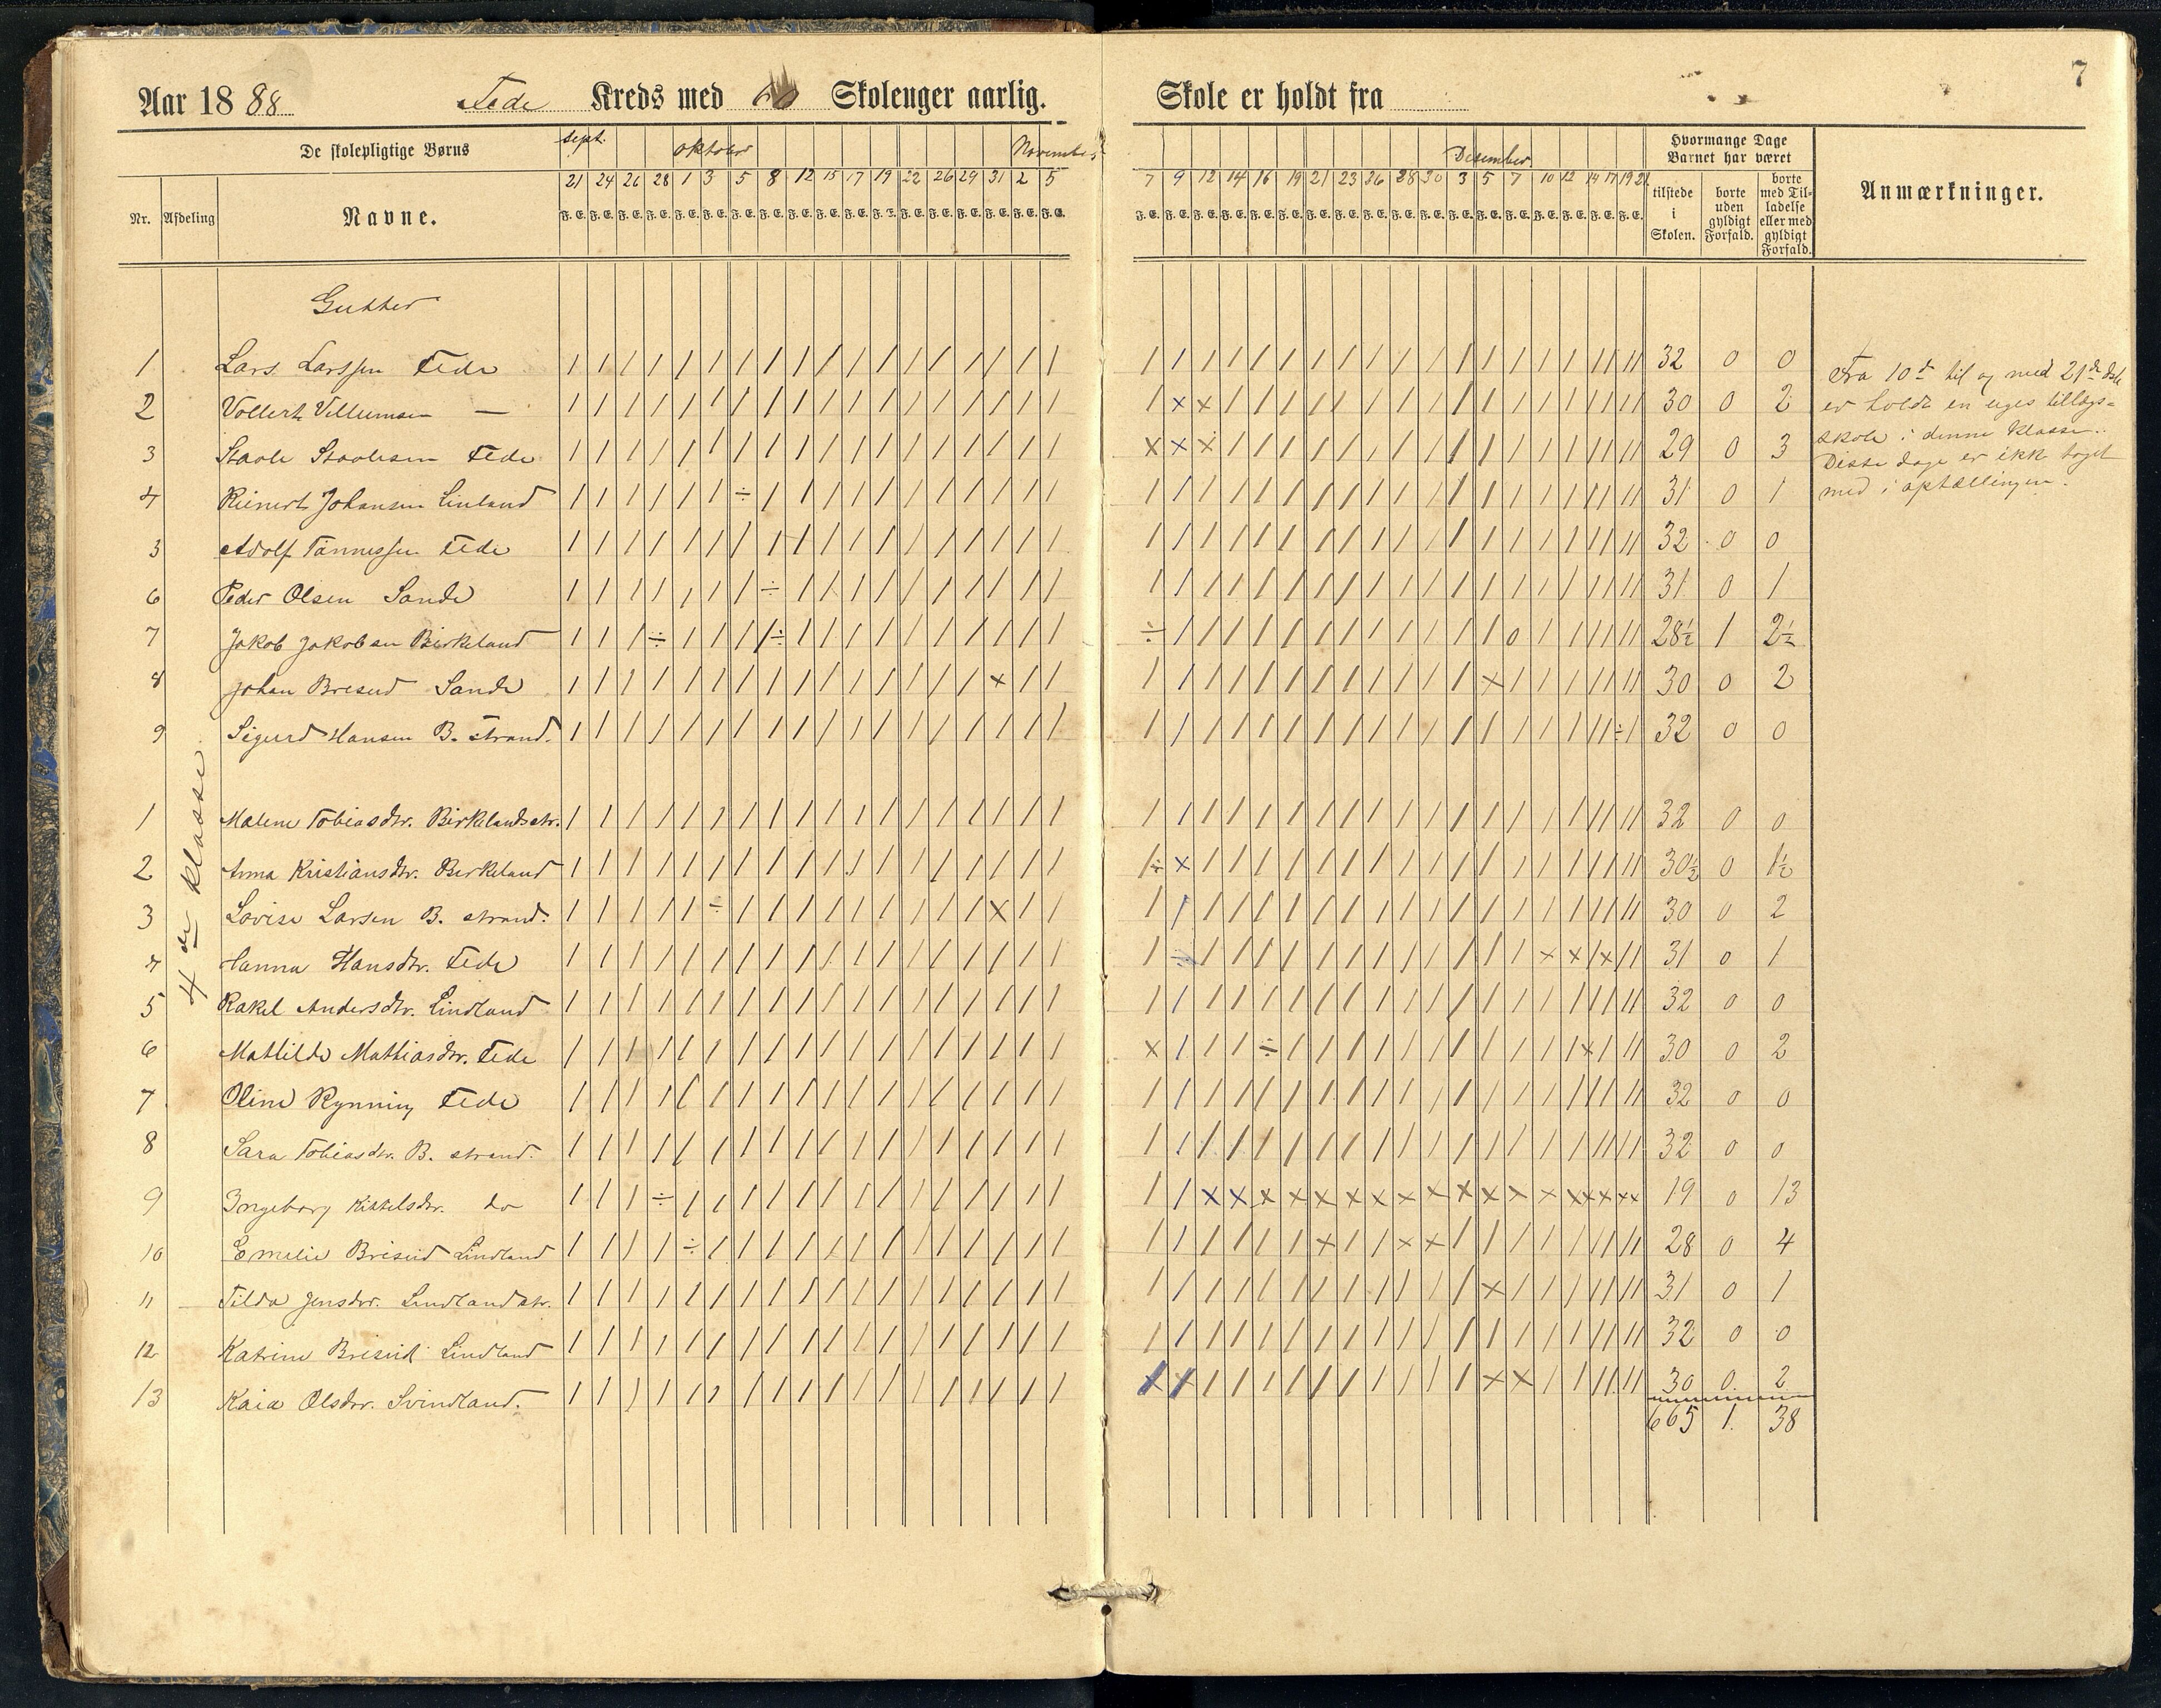 7
Aar 1888 Fede Kreds med Skoleuger aarlig. Skole er holdt fra
De skolepligtige Børns sept. oktober November Desember Hvormange Dage Barnet har været
Nr. Afdeling Navne. tilstede i Skolen. borte uden gyldigt Forfald. borte med Tilladelse eller med gyldigt Forfald. Anmærkninger.
21 24 26 28 1 3 5 8 12 15 17 19 22 26 29 31 2 5 7 9 12 14 16 19 21 23 26 28 30 3 5 7 10 12 14 17 19 21
F. E. F. E. F. E. F. E. F. E. F. E. F. E. F. E. F. E. F. E. F. E. F. E. F. E. F. E. F. E. F. E. F. E. F. E. F. E. F. E. F. E. F. E. F. E. F. E. F. E. F. E. F. E. F. E. F. E. F. E. F. E. F. E. F. E. F. E. F. E. F. E.
Gutter
4de klasse
1 Lars Larssen Fede 32 0 0
2 Vollert Villumsen — 30 0 2
3 Staale Staalesen Fede 29 0 3
4 Reinert Johansen Linland 31 0 1
5 Adolf Tønnessen Fede 32 0 0
6 Peder Olsen Sande 31 0 1
7 Jakob Jakobsen Birkeland 28½ 1 2½
8 Johan Bresed Sande 30 0 2
9 Sigurd Hansen B. strand. 32 0 0
1 Malene Tobiasdtr. Birkelandsstr. 32 0 0
2 Anna Kristiansdtr. Birkeland 30½ 0 1½
3 Lovise Larsen B. strand. 30 0 2
4 Hanna Hansdtr. Fede 31 0 1
5 Rakel Andersdtr. Lindland 32 0 0
6 Mathilde Mathiasdtr. Fede 30 0 2
7 Oline Rynning Fede 32 0 0
8 Sara Tobiasdtr. B. strand. 32 0 0
9 Ingeborg Kittelsdtr. do 19 0 13
10 Emelie Bresed Lindland 28 0 4
11 Tilda Jensdtr. Lindlandstr. 31 0 1
12 Katrine Bresed Lindland 32 0 0
13 Kaia Olsdtr. Svindland. 30 0 2
665 1. 38
Fra 10de til og med 21de dsbr
er holdt en uges tillægs=
skole i denne klasse.
Disse dage er ikke taget
med i optællingen.